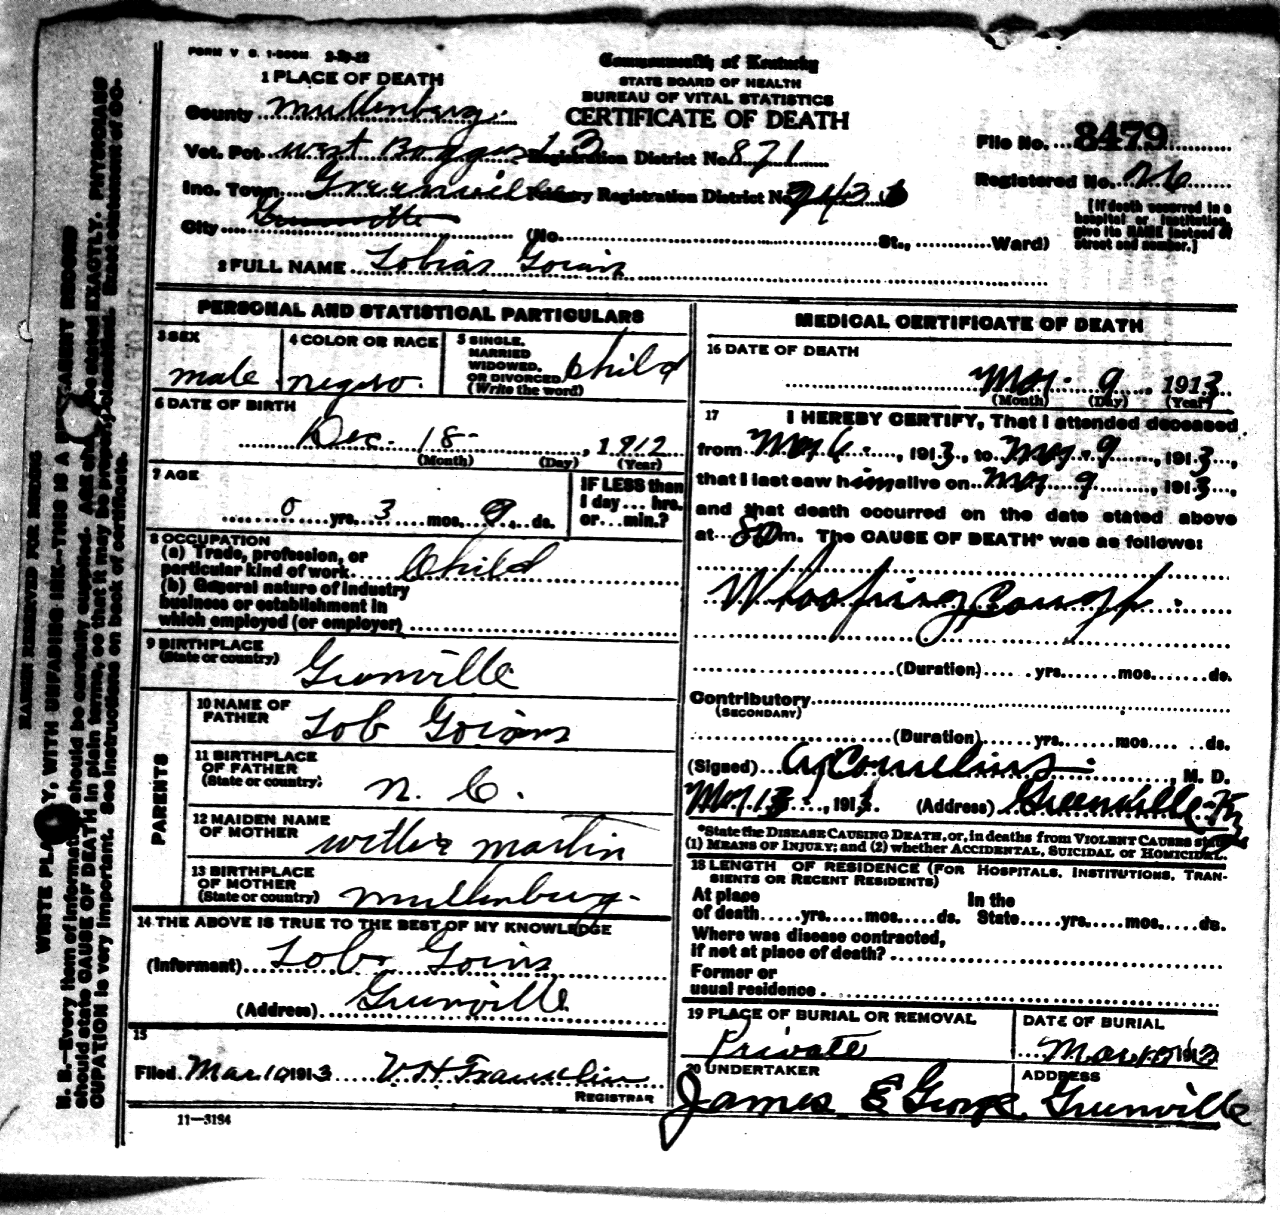 FORM V S. 1-500M. 2-20-12
Commonwealth of Kentucky
STATE BOARD OF HEALTH
BUREAU OF VITAL STATISTICS
CERTIFICATE OF DEATH
1 PLACE OF DEATH
County Muhlenburg.
Vot. Pct. West Boggus 13 Registration District No. 871
Inc. Town Greenville Primary Registration District No.
City Greenville (No. St., Ward)
File No. 8479
Registered No. 26
[If death occurred in a
hospital or institution,
give its NAME instead of
street and number.]
2 FULL NAME Tobias Goins
PERSONAL AND STATISTICAL PARTICULARS
3 SEX
male
4 COLOR OR RACE
negro.
5 SINGLE,
MARRIED
WIDOWED,
OR DIVORCED
(Write the word)
Child
6 DATE OF BIRTH
Dec. 18 - , 1912
(Month) (Day) (Year)
7 AGE
0 yrs. 3 mos. ds.
IF LESS than
1 day... hrs.
or... min.?
8 OCCUPATION
(a) Trade, profession, or
particular kind of work. Child
(b) General nature of industry
business or establishment in
which employed (or employer)
9 BIRTHPLACE
(State or country)
Grenville
PARENTS
10 NAME OF
FATHER
Tob Goins
11 BIRTHPLACE
OF FATHER
(State or country)
N. C.
12 MAIDEN NAME
OF MOTHER
Martin
13 BIRTHPLACE
OF MOTHER
(State or country)
Muhlenburg.
14 THE ABOVE IS TRUE TO THE BEST OF MY KNOWLEDGE
(Informant) Tob Goins
(Address) Grenville
15
Filed Mar 10 1913 REGISTRAR
11—3184
MEDICAL CERTIFICATE OF DEATH
16 DATE OF DEATH
Mar. 9, 1913
(Month) (Day) (Year)
17 I HEREBY CERTIFY, That I attended deceased
from Mar 6, 1913, to Mar. 9, 1913,
that I last saw him alive on Mar 9, 1913,
and that death occurred on the date stated above
at m. The CAUSE OF DEATH* was as follows:
Whooping Cough.
(Duration) yrs. mos. ds.
Contributory
(SECONDARY)
(Duration) yrs. mos. ds.
(Signed) Cornelius, M. D.
Mar. 13, 191 (Address) Greenville Ky
*State the DISEASE CAUSING DEATH, or, in deaths from VIOLENT CAUSES state
(1) MEANS OF INJURY; and (2) whether ACCIDENTAL, SUICIDAL or HOMICIDAL.
18 LENGTH OF RESIDENCE (FOR HOSPITALS, INSTITUTIONS, TRAN-
SIENTS OR RECENT RESIDENTS)
At place In the
of death yrs. mos. ds. State yrs. mos. ds.
Where was disease contracted,
if not at place of death?
Former or
usual residence
19 PLACE OF BURIAL OR REMOVAL
Private
DATE OF BURIAL
Mar 10 1913
20 UNDERTAKER
James E George
ADDRESS
Grenville
MARGIN RESERVED FOR BINDING
WRITE PLAINLY, WITH UNFADING INK—THIS IS A PERMANENT RECORD
N. B.—Every item of information should be carefully supplied. AGE should be stated EXACTLY. PHYSICIANS
should state CAUSE OF DEATH in plain terms, so that it may be properly classified. Exact statement of OC-
CUPATION is very important. See instructions on back of certificate.